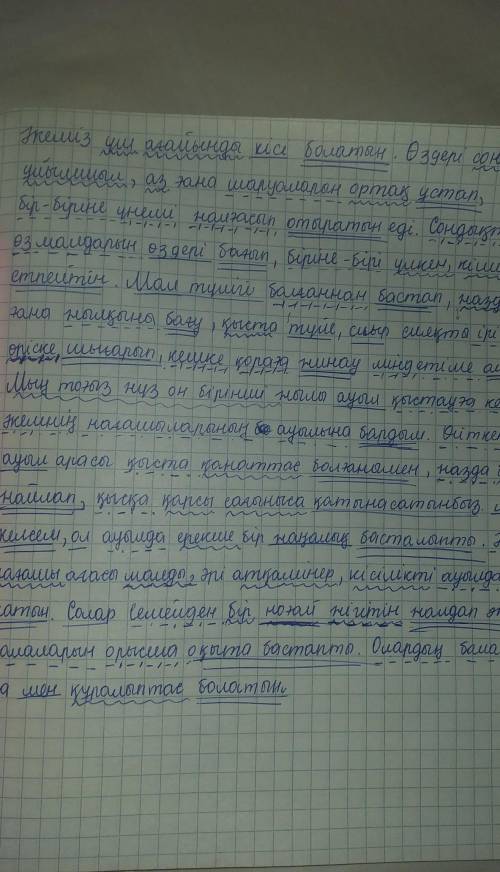 Әкеміз үш ағайынды кісі болатын. Өздері
ұйымшыл, аз ғана шаруаларын ортақ ұстап,
бір-біріне үнемі жалғасып отыратын еді.
өз малдарын өздері бағып, біріне-бірі үлкен, кіші
етпейтін. Мал түлігі балғаннан бастап,
ғана жылқыны бағу, қыста түйе, сиыр сияқты ірі
өріске шығарып, кешке қораға жинау міндетіме
Мың тоғыз жүз он бірінші жылы ауыл қыстауға
Әкемнің нағашыларының ауылына бардым.
ауыл арасы қыста қанаттас болғанымен,
жайлап, қысқа қарсы сағыныса қатынасатынбыз
келсем, ол ауылда ерекше бір жаңалық басталыпты.
ағасы малды, әрі атқамінер, кісімікті
Солар Семейден бір ноғай жігітін жалдап
орысша оқыта бастапты. Олардың
мен құралыптас болатын.